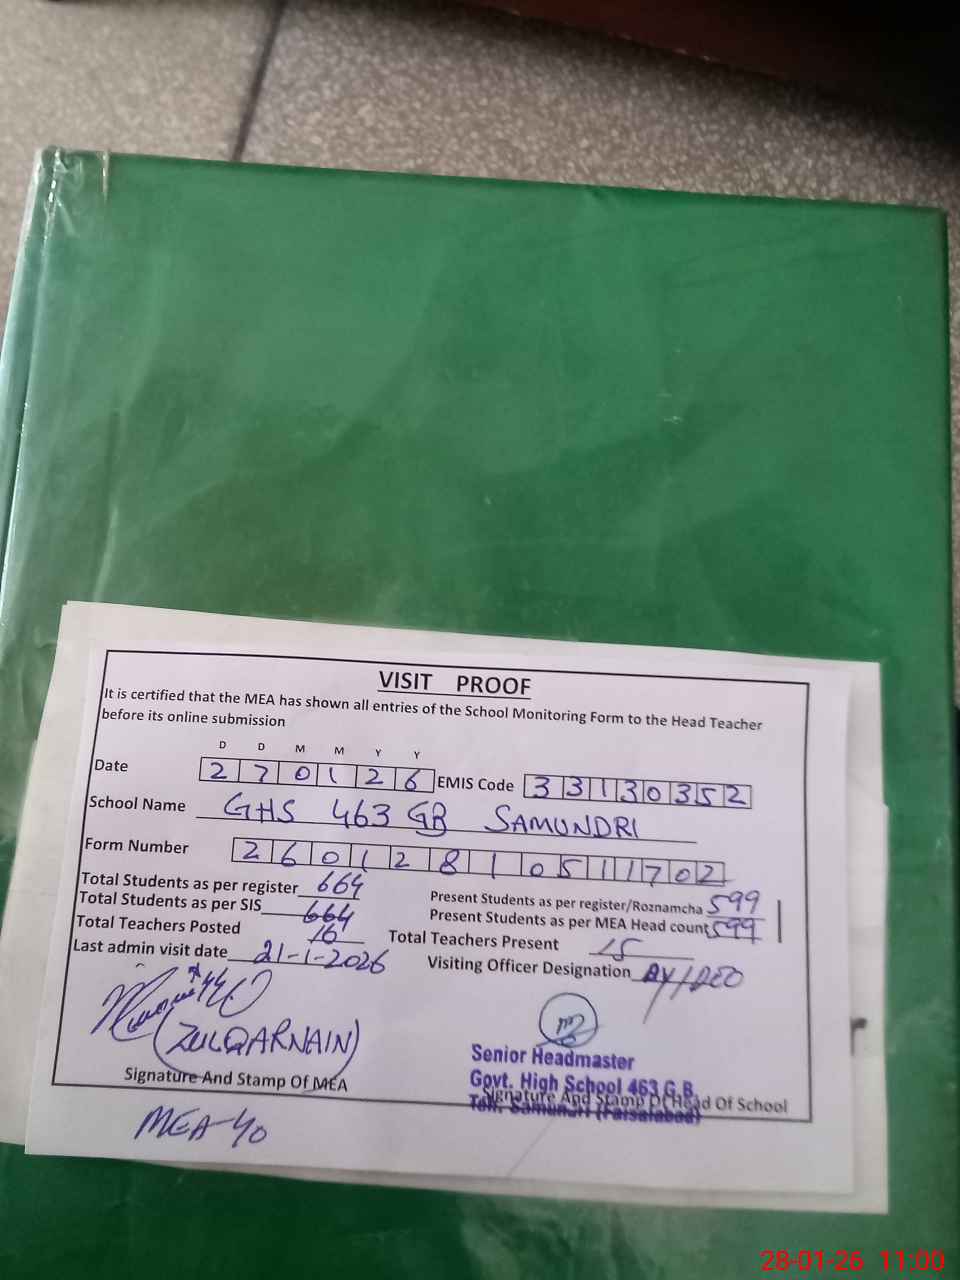 VISIT PROOF
It is certified that the MEA has shown all entries of the School Monitoring Form to the Head Teacher
before its online submission
D D M M Y Y
Date 270126 EMIS Code 33130352
School Name GHS 463 GB SAMUNDRI
Form Number 2601281051702
Total Students as per register 664 Present Students as per register/Roznamcha 599
Total Students as per SIS 664 Present Students as per MEA Head count 599
Total Teachers Posted 16 Total Teachers Present 15
Last admin visit date 21-1-2026 Visiting Officer Designation DEO
(ZULQARNAIN)
Senior Headmaster
Govt. High School 463 G.B.
Teh. Samundri (Faisalabad)
Signature And Stamp Of MEA Signature And Stamp Of Head Of School
MEA-40
28-01-26 11:00